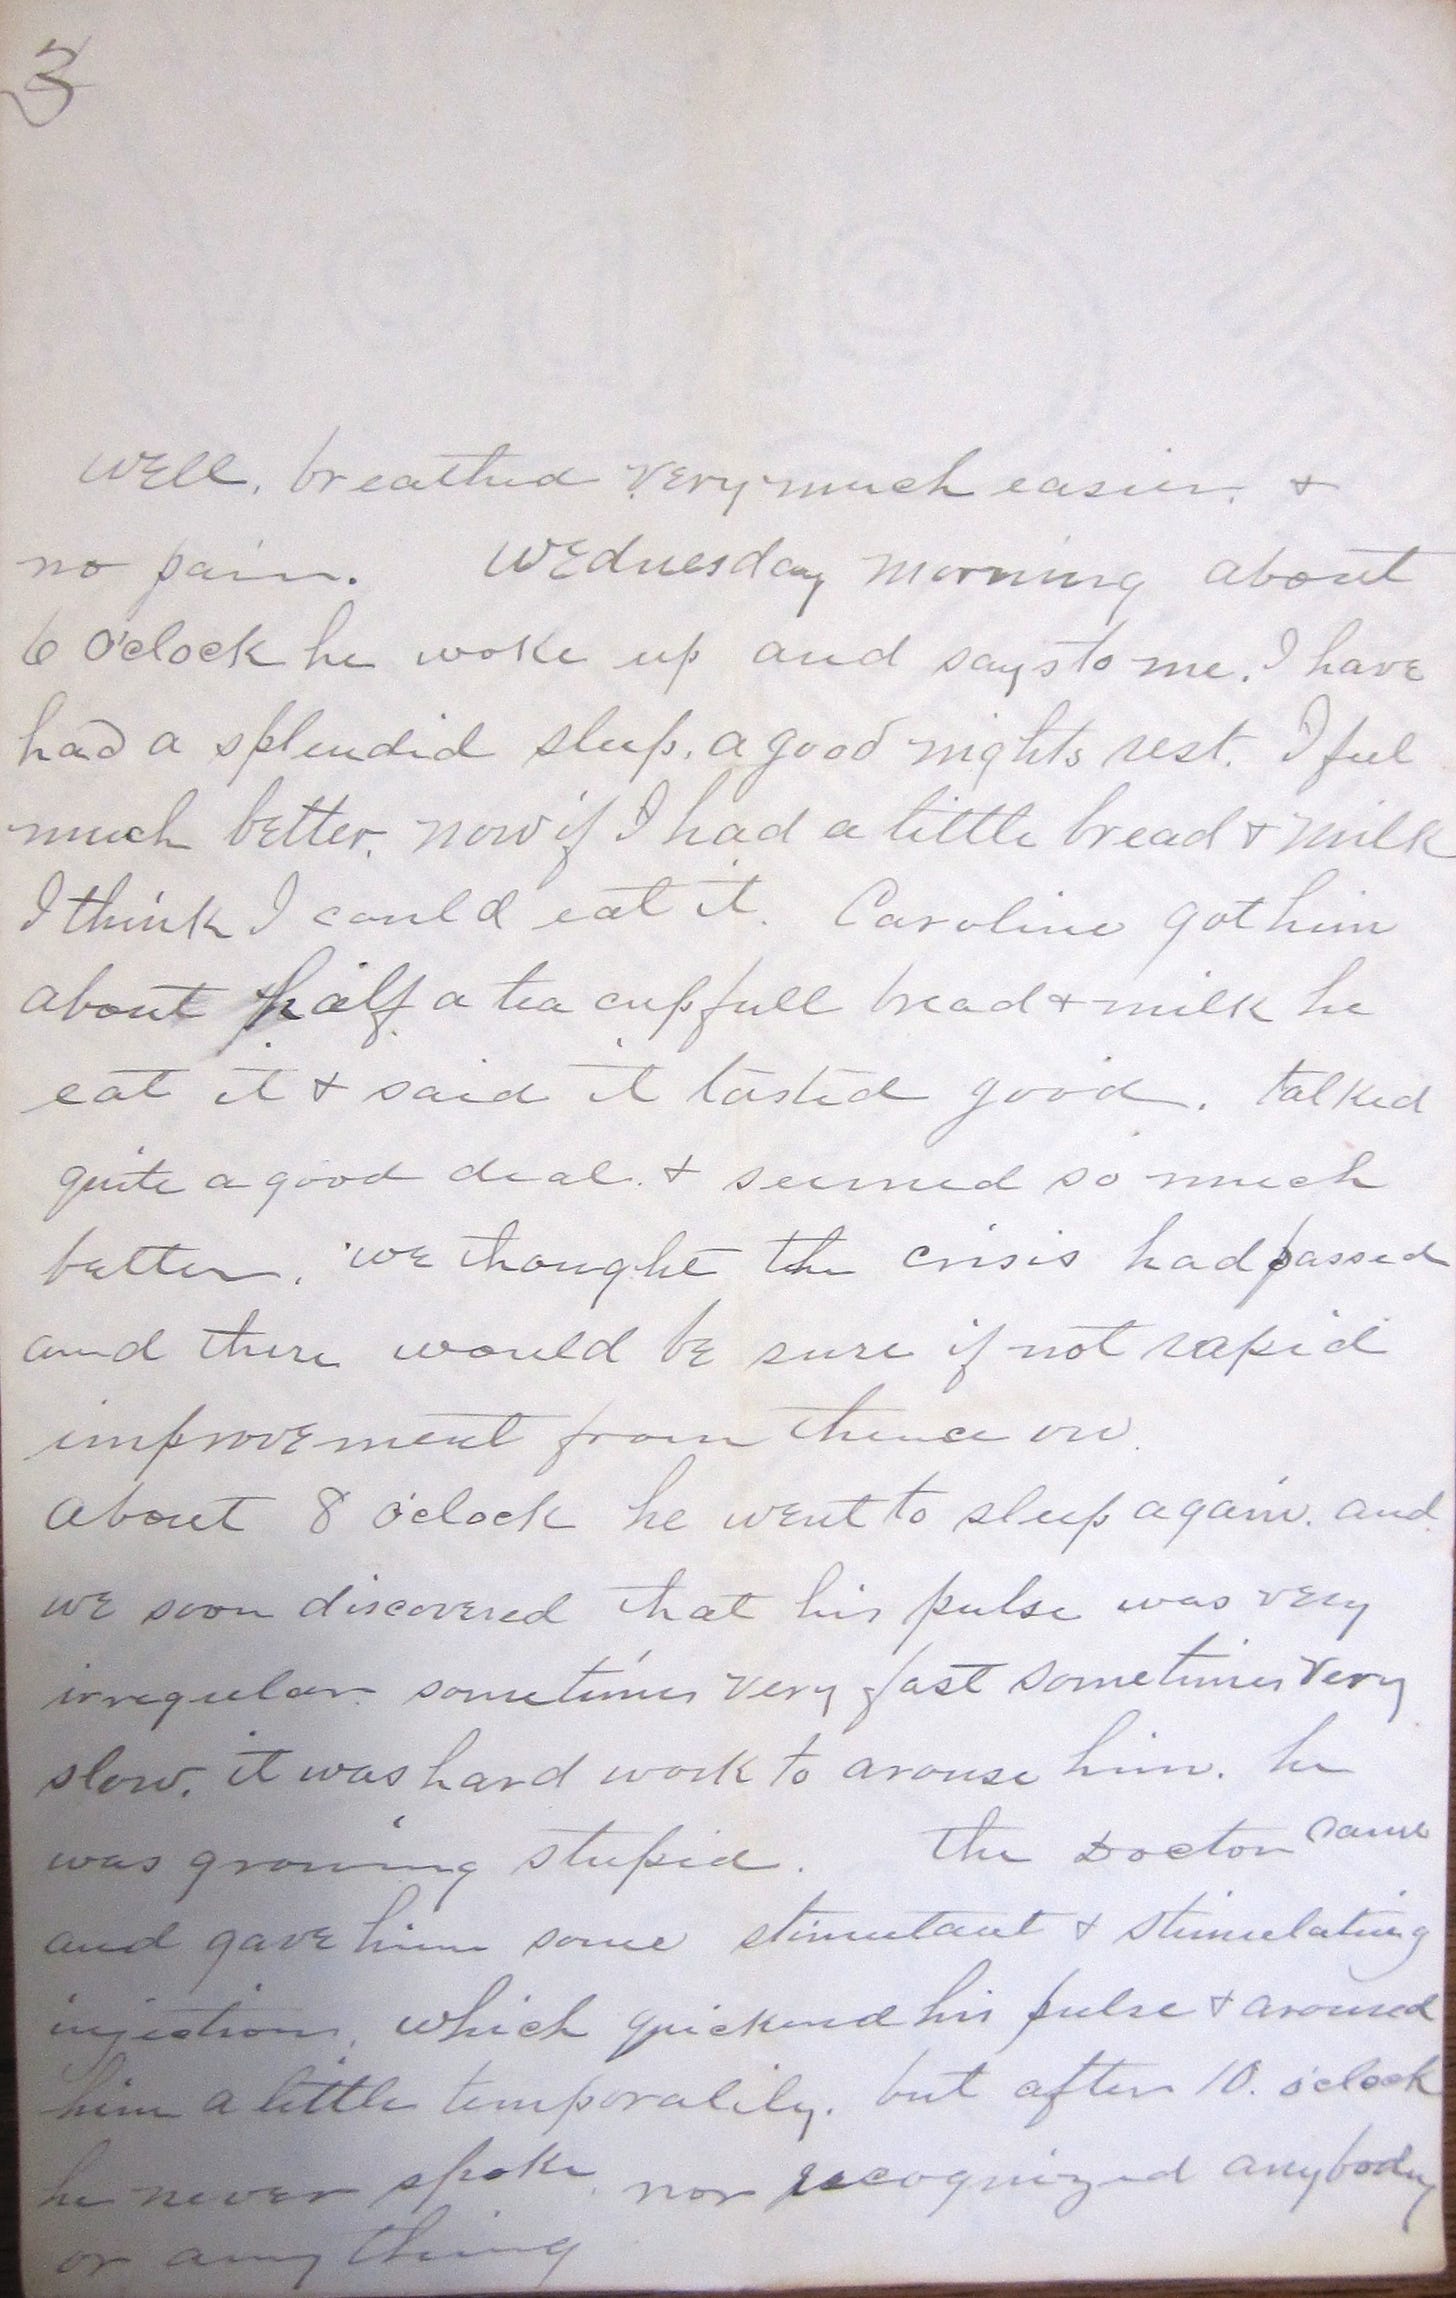 3
Well, breathed very much easier. &
no pain. Wednesday morning about
6 O'clock he woke up and says to me. I have
had a splendid sleep. a good nights rest. I feel
much better. now if I had a little bread & milk
I think I could eat it. Caroline got him
about half a tea cup full bread & milk he
eat it & said it tasted good. talked
quite a good deal. & seemed so much
better. we thought the crisis had passed
and there would be sure if not rapid
improvement from thence on.
About 8 o'clock he went to sleep again. and
we soon discovered that his pulse was very
irregular. sometimes very fast sometimes very
slow. it was hard work to arouse him. he
was growing stupid. The Doctor came
and gave him some stimulant & stimulating
injections, which quickend his pulse & aroused
him a little temporalily. but after 10. o'clock
he never spoke, nor recognized anybody
or anything